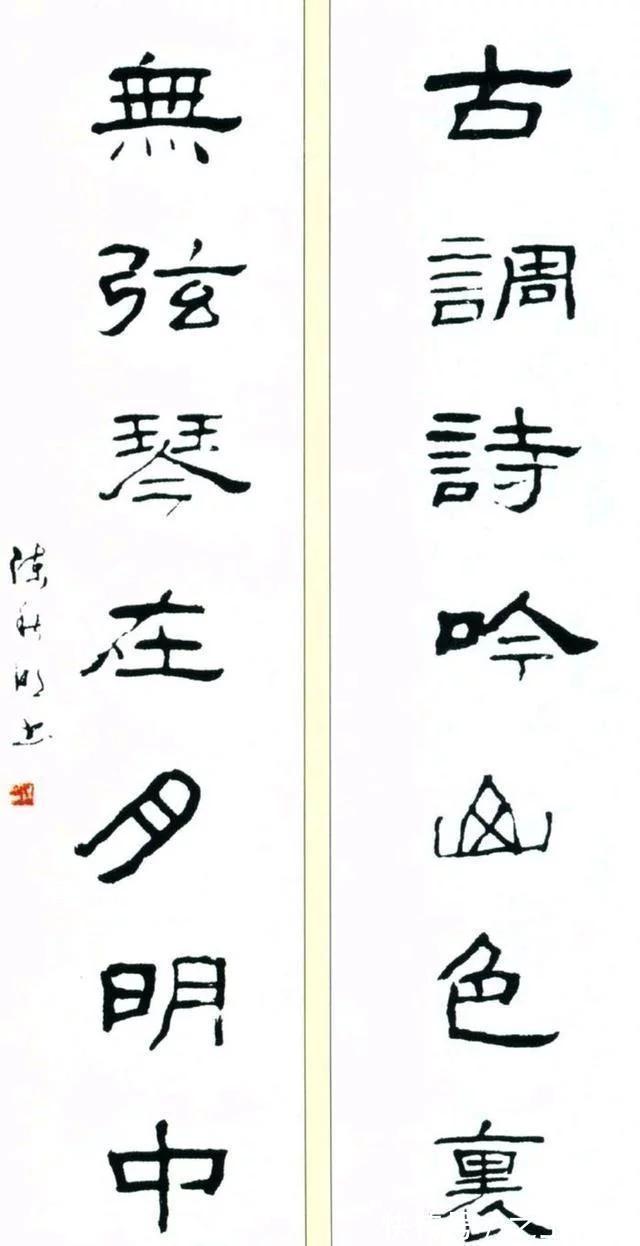 古調詩吟山色裏
無弦琴在月明中
陳秋明書